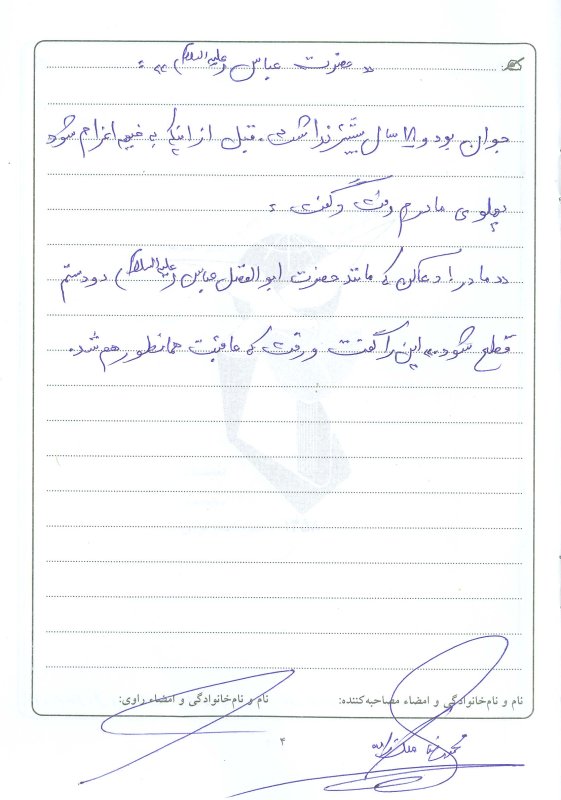 « حضرت عباس (علیه السلام) » :
جوان بود و ۱۸ سال بیشتر نداشت. قبل از اینکه به اعزام شود
پهلوی مادرم رفت و گفت :
«مادر! دعا کن که مانند حضرت ابوالفضل عباس (علیه السلام) دو دستم
قطع شود.» این را گفت و رفت که عاقبت همانطور هم شد.
نام و نام‌خانوادگی و امضاء مصاحبه‌کننده:
نام و نام‌خانوادگی و امضاء راوی:
۴